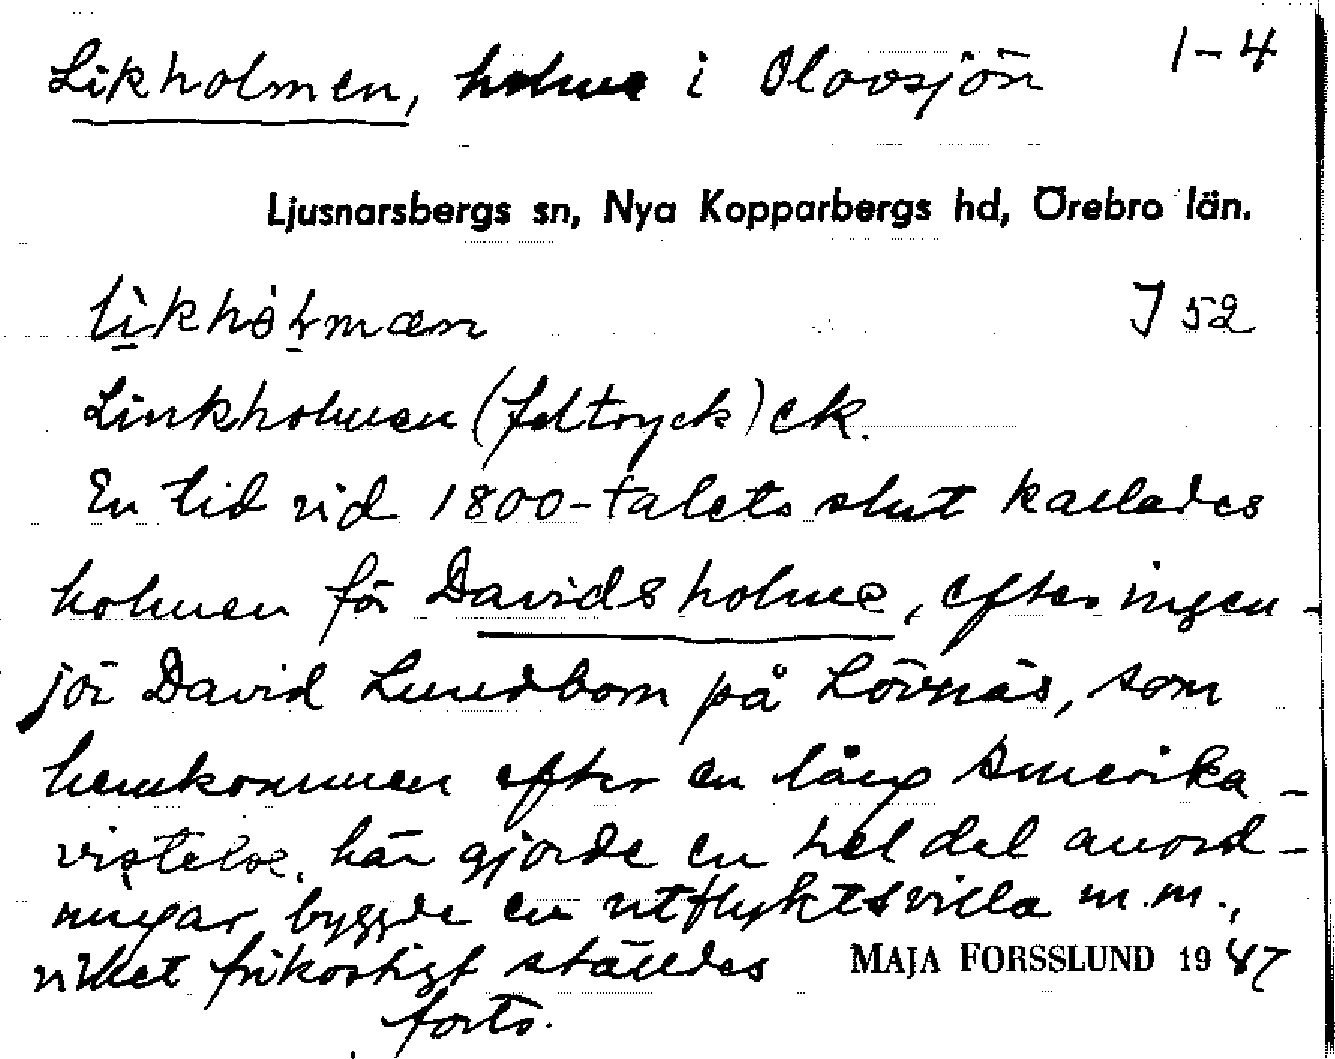 Likholmen, holme i Olovsjön 1-4
Ljusnarsbergs sn, Nya Kopparbergs hd, Örebro län.
J 52
Linkholmen (feltryck) ek.
En tid vid 1800-talets slut kallades
holmen för Davidsholme, efter ingen-
jör David Lundbom på Lövnäs, som
hemkommen efter en lång Amerika-
vistelse, här gjorde en hel del anord-
ningar, byggde en utflyktsvilla m.m.,
vilket frikostigt ställdes MAJA FORSSLUND 1947
forts.